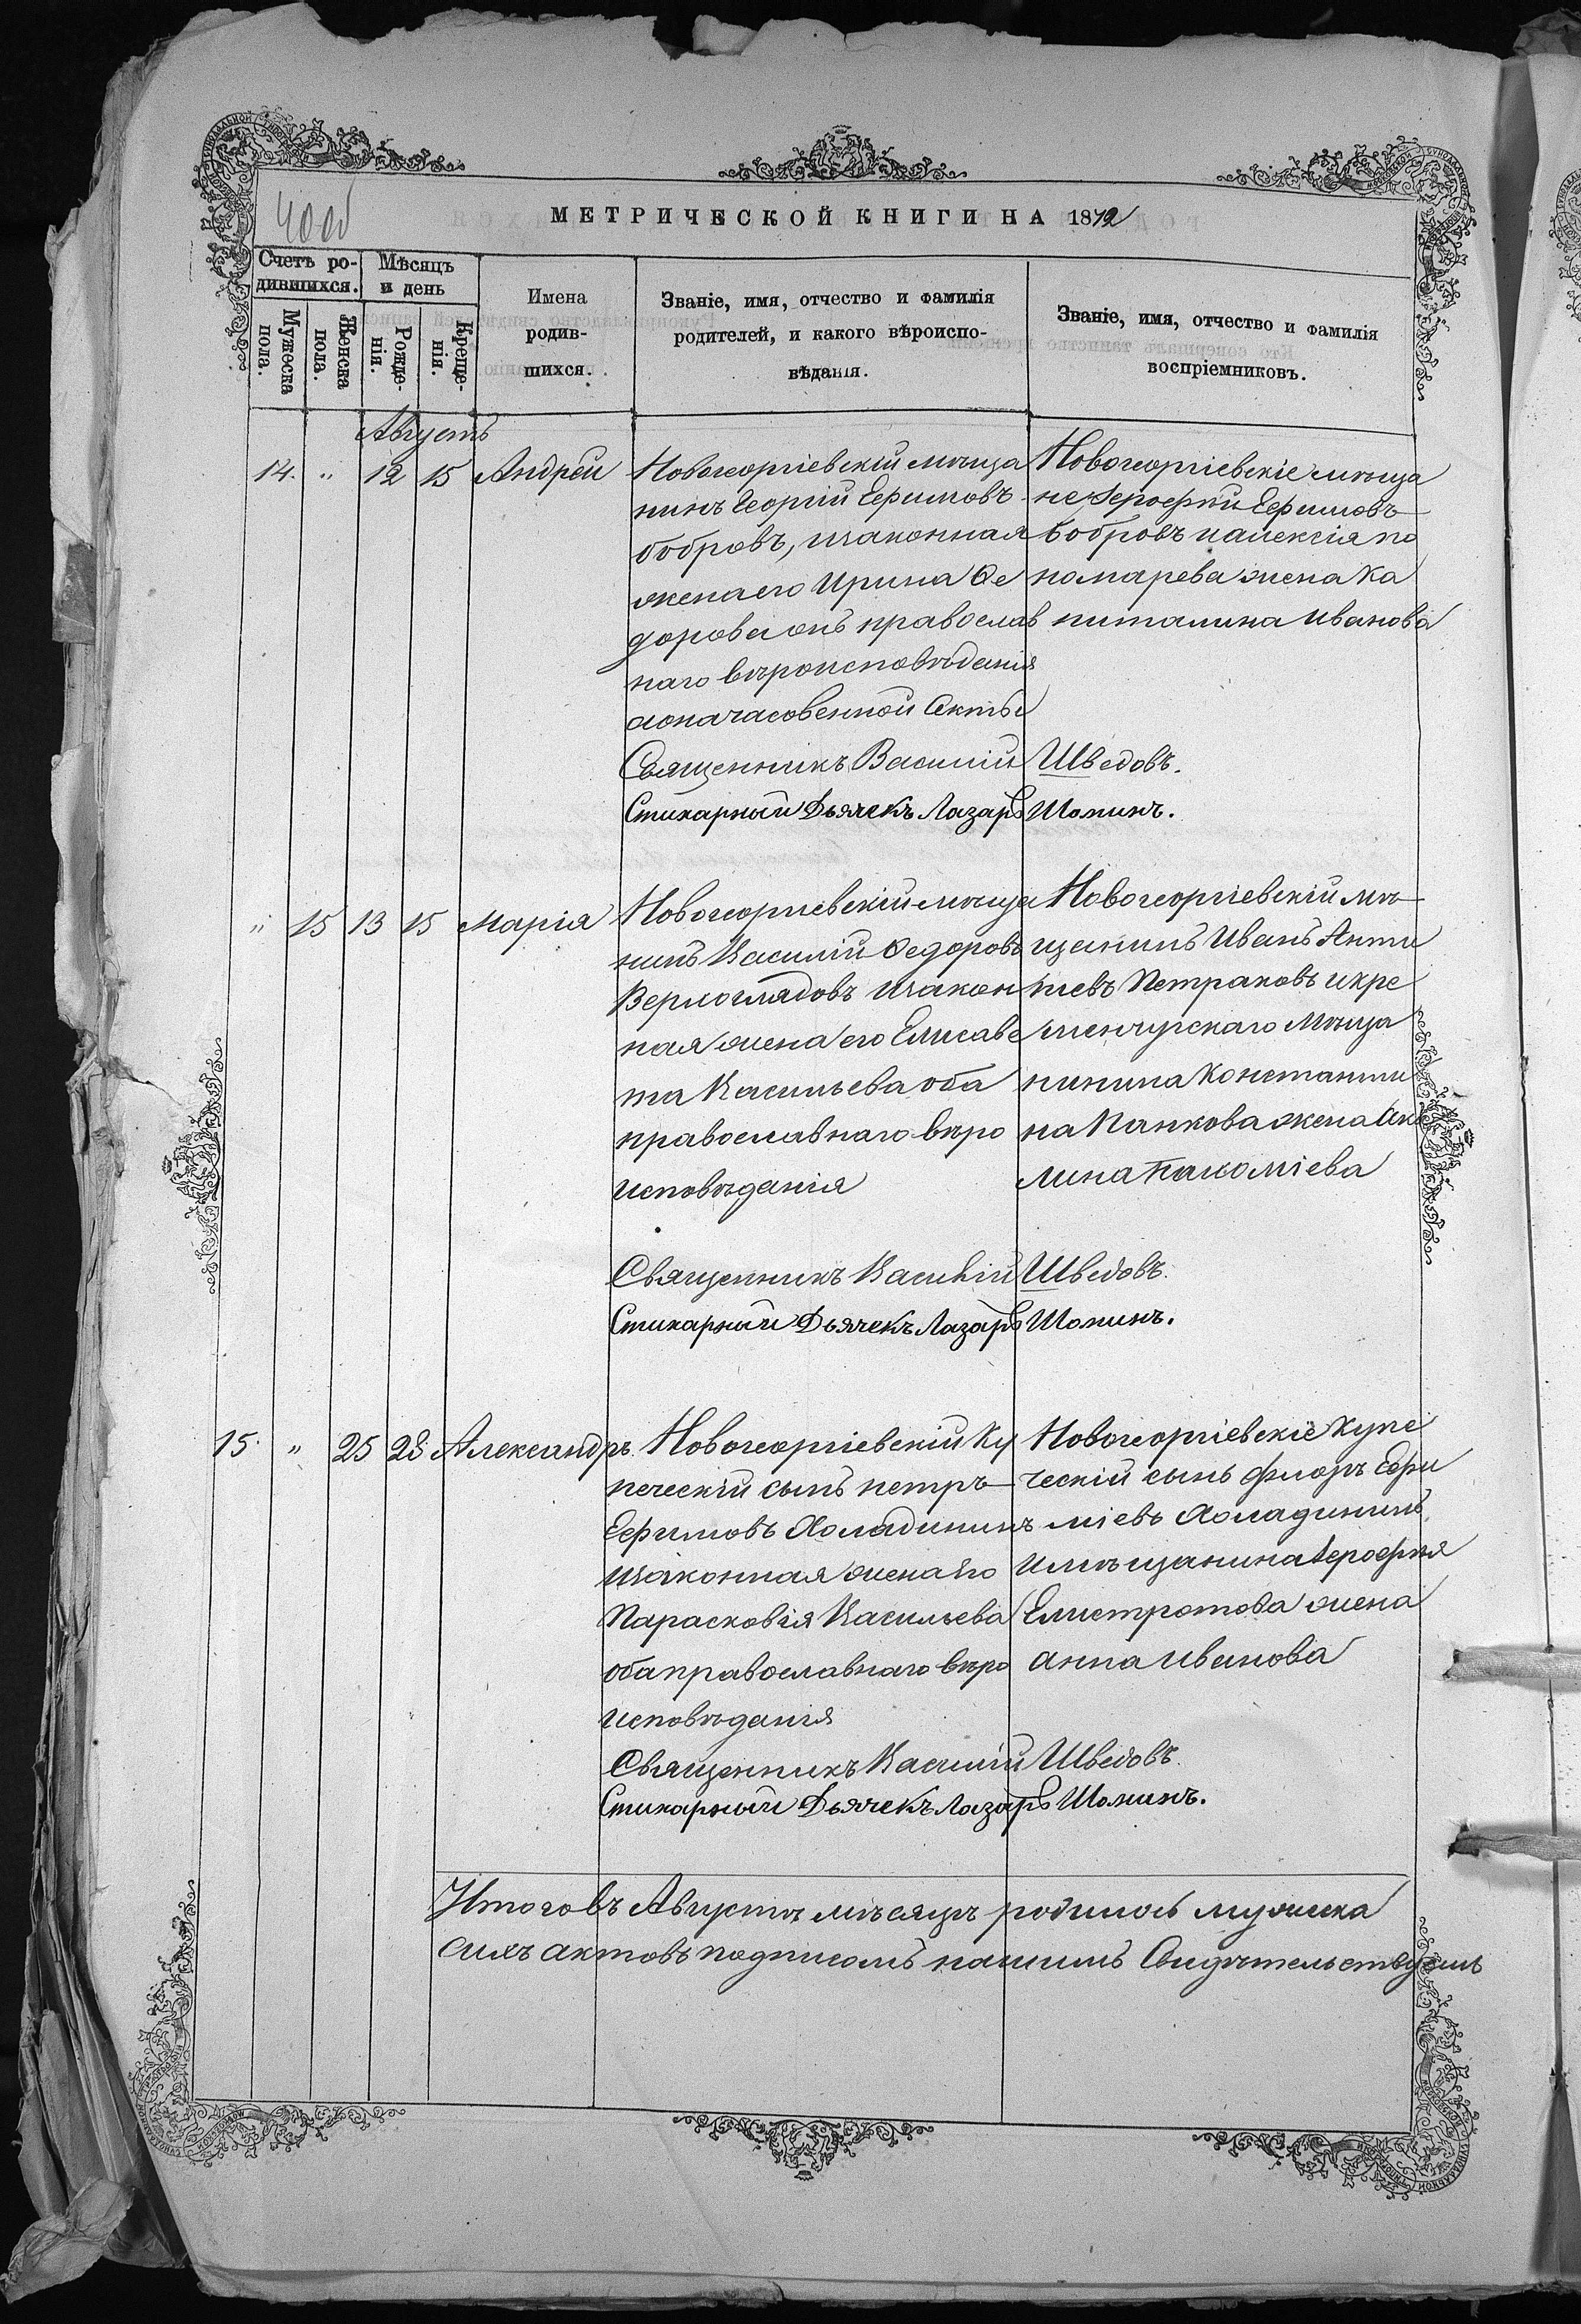 40об
МЕТРИЧЕСКОЙ КНИГИ НА 1872
Счетъ ро-
дившихся.
Мѣсяцъ
и день
Мужеска
пола.
Женска
пола.
Рожде-
нія.
Креще-
нія.
Имена
родив-
шихся.
Званіе, имя, отчество и фамилія
родителей, и какого вѣроиспо-
вѣданія.
Званіе, имя, отчество и фамилія
воспріемниковъ.
Августъ
14. " 12 15 Андрей
Новогеоргіевскій мѣща
нинъ Георгій Ефимовъ
бобровъ, изаконная
женаего Ирина Ѳе
дорова онъ православ
наго вѣроисповѣданія
аоначасовенной Секты
Новогеоргіевскіе мѣща
не Герофѣй Ефимовъ
бобровъ иалексія по
номарева жена Ка
питалина иванова
Священникъ Василій Шведовъ.
Стихарный Дьячекъ Лазарь Шопинъ.
" 15 13 15 Марія
Новогеоргіевскій мѣща
нинъ Василій Ѳедоровъ
Верхоглядовъ изакон
ная жена его Елисаве
та Васильева оба
православнаго вѣро
исповѣданія
Новогеоргіевскій мѣ
щанинъ Иванъ Анти
піевъ Петраковъ икре
менчугскаго мѣща
нинина Константи
на Панкова жена Аку
лина Пахоміева
Священникъ Василій Шведовъ.
Стихарный Дьячекъ Лазарь Шопинъ.
15. " 25 28 Александръ
Новогеоргіевскій Ку
печескій сынъ петръ
Ефимовъ Холадилинъ
изаконная женаего
Парасковія Васильева
оба православнаго вѣро
исповѣданія
Новогеоргіевскіе Купе
ческій сынъ флоръ Ефи
міевъ Холадилинъ
имѣщанина Герофѣя
Елистротова жена
анна иванова
Священникъ Василій Шведовъ.
Стихарный Дьячекъ Лазарь Шопинъ.
Итого въ Августѣ мѣсяцѣ родилось мужеска
сихъ актовъ подписомъ нашимъ Свидѣтельствуемъ